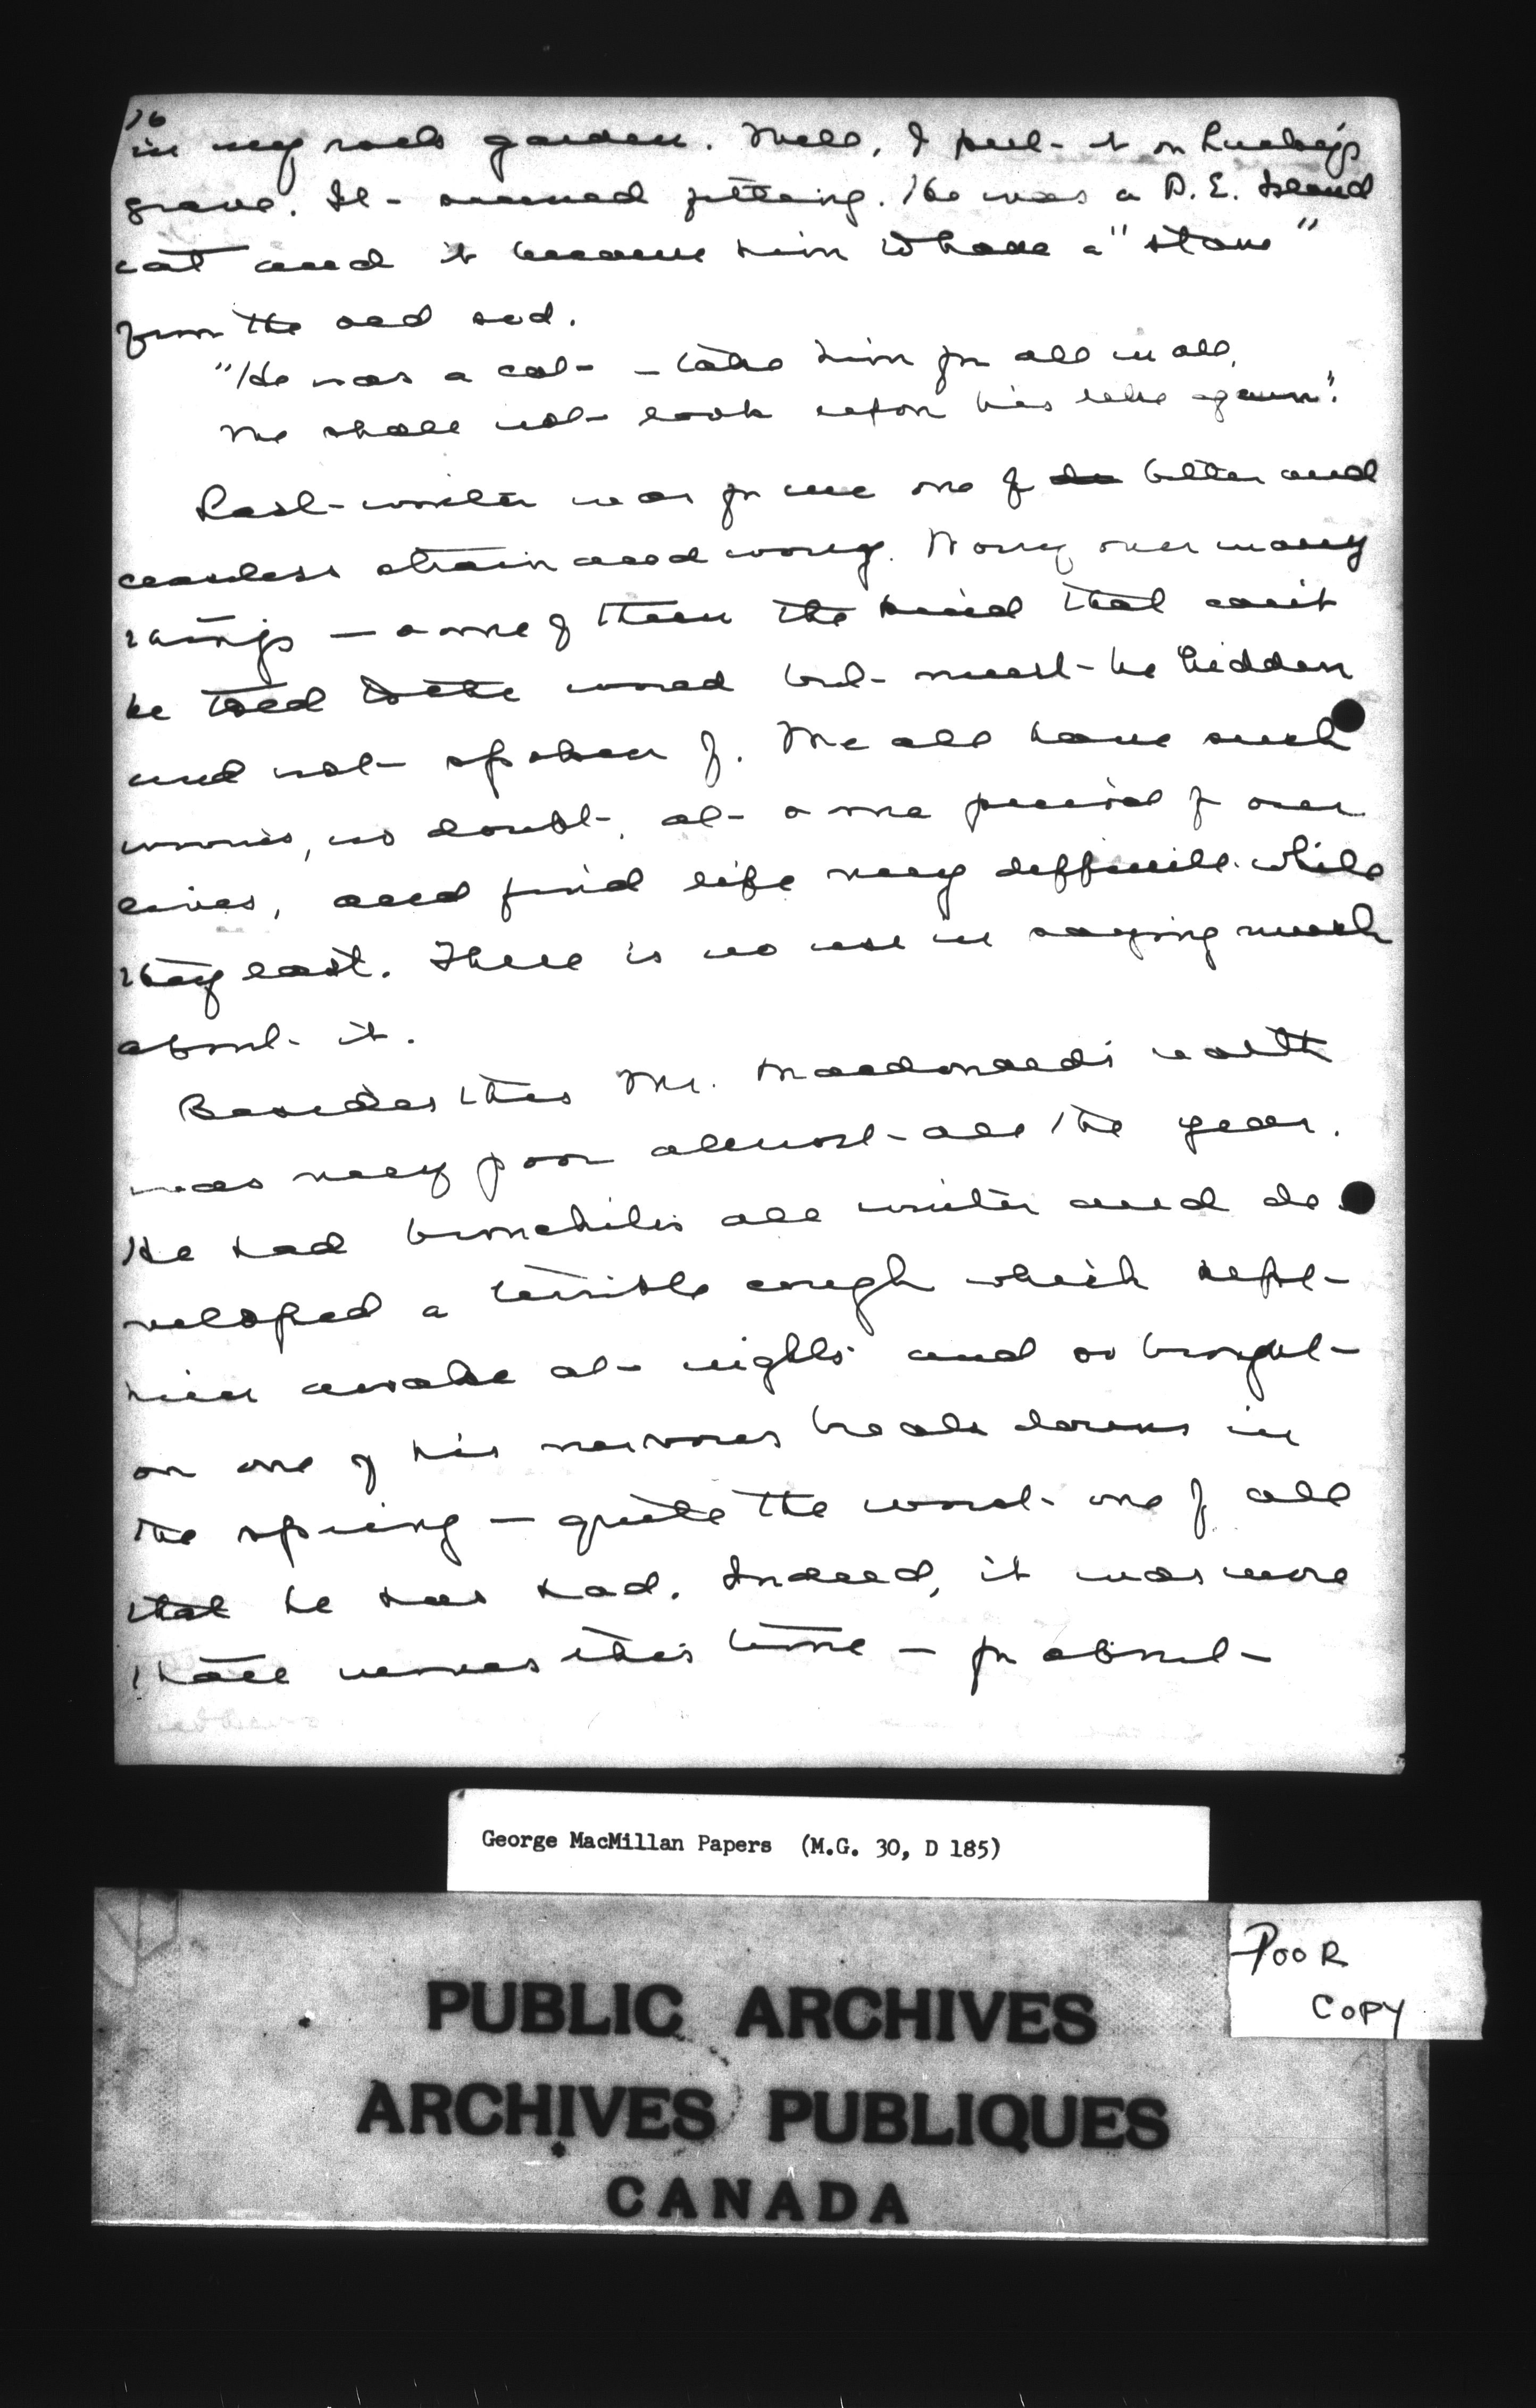 16
in my rock garden. Well, I put it on Lucky's
grave. It seemed fitting. He was a P. E. Island
cat and it became him to have a "stone"
from the old sod.
"He was a cat - take him for all in all,
We shall not look upon his like again."
Last winter was for me one of bitter and
ceaseless strain and worry. Worry over many
things — some of them the kind that can't
be told to the world but must be hidden
and not spoken of. We all have such
worries, no doubt, at some period of our
lives, and find life very difficult while
they last. There is no use in saying much
about it.
Besides this Mr. Macdonald's health
was very poor almost all the year.
He had bronchitis all winter and de
veloped a terrible cough which kept
him awake at nights and so brought
on one of his nervous break downs in
the spring — quite the worst one of all
that he has had. Indeed, it was more
than nerves this time — for about
George MacMillan Papers (M.G. 30, D 185)
POOR
COPY
PUBLIC ARCHIVES
ARCHIVES PUBLIQUES
CANADA